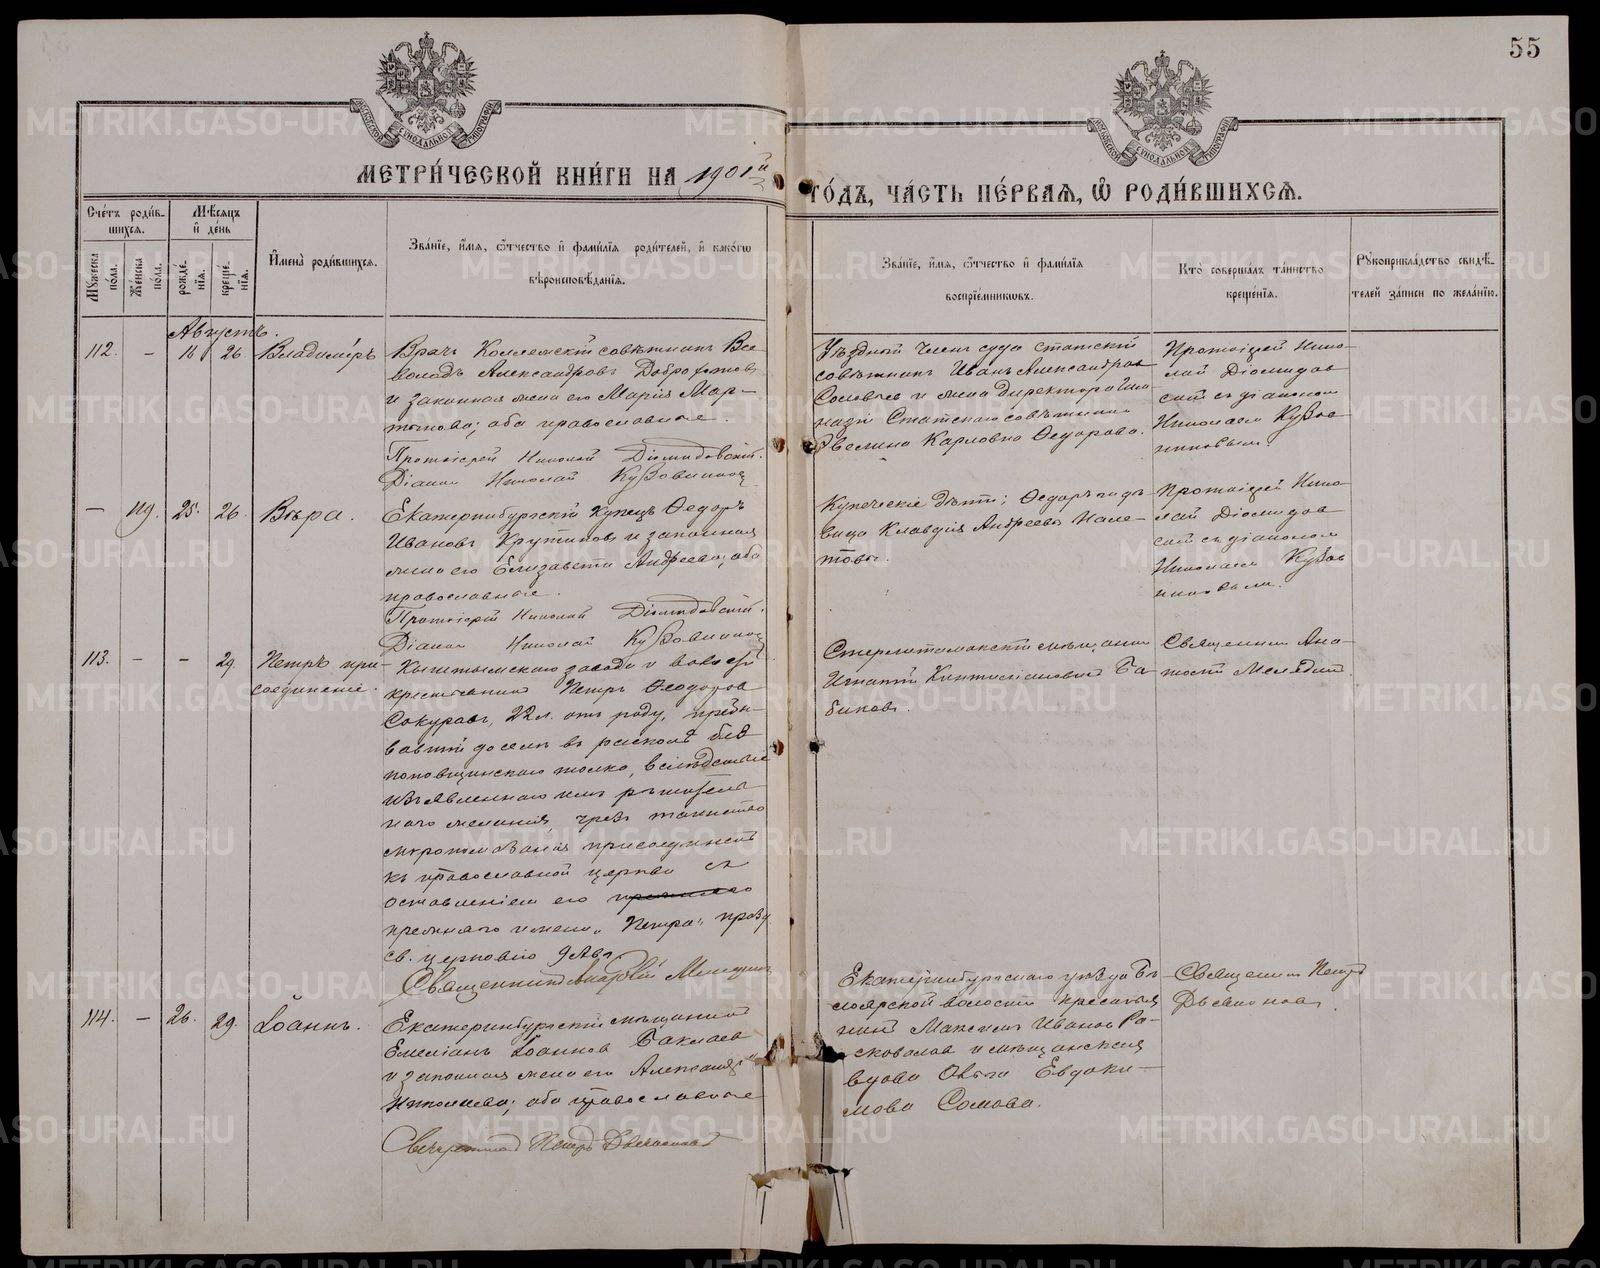 55
МЕТРИ́ЧЕСКОЙ КНИ́ГИ НА 1901й
ГО́ДЪ, ЧА́СТЬ ПЕ́РВАЯ, Ѽ РОДИ́ВШИХСЯ.
Сче́тъ роди́в-
шихся.
Мꙋ́жеска по́ла.
Же́нска по́ла.
Мѣ́сяцъ и де́нь
рожде́-
нїя.
креще́-
нїя.
И҆мена̀ роди́вшихся.
Зва́нїе, и҆́мя, ѻ҆́тчество и҆ фами́лїя роди́телей, и҆ како́гѡ
вѣроисповѣ́данїя.
Зва́нїе, и҆́мя, ѻ҆́тчество и҆ фами́лїя
воспрїе́мникѡвъ.
Кто̀ соверша́лъ та́инство
креще́нїя.
Рꙋкоприкла́дство свидѣ́-
телей за́писи по жела́нїю.
Августъ.
112. – 16 26 Владимиръ
Врачъ Коллежскій совѣтникъ Все-
володъ Александровъ Доброхотовъ
и законная жена его Марія Мар-
тынова; оба православные.
Протоіерей Николай Діомидовскій.
Діаконъ Николай Кузовниковъ
Уѣздный Членъ суда статскій
совѣтникъ Иванъ Александровъ
Соловьевъ и жена директора Гим-
назіи Статскаго совѣтника
Эвелина Карловна Ѳедорова.
Протоіерей Нико-
лай Діомидов
скій съ діакономъ
Николаемъ Кузов
никовымъ.
– 119. 25. 26. Вѣра.
Екатеринбургскій купецъ Ѳедоръ
Ивановъ Крутиковъ и законная
жена его Елизавета Андреева; оба
православные.
Протоіерей Николай Діомидовскій.
Діаконъ Николай Кузовниковъ
Купеческіе дѣти; Ѳедоръ и дѣ-
вица Клавдія Андреевы Нале-
товы.
Протоіерей Нико
лай Діомидов
скій съ діакономъ
Николаемъ Кузов
никовымъ.
113. – – 29. Петръ при-
соединеніе.
Кыштымскаго завода и волости
крестьянинъ Петръ Ѳеодоровъ
Сокуравъ, 22 л. отъ роду, пребы-
вавшій доселѣ въ расколѣ без
поповщинскаго толка, вслѣдствіе
изъявленнаго имъ рѣшитель
наго желанія, чрезъ таинство
мѵропомазанія присоединенъ
къ православной церкви съ
оставленіемъ его
прежняго имени "Петра" празд.
св. церковію 9 Авг.
Священникъ Анатолій
Стерлитамакскій мѣщанинъ
Игнатій Ба-
биковъ.
Священникъ Ана-
толій
114. – 26. 29. Іоаннъ.
Екатеринбургскій мѣщанинъ
Емеліанъ Іоанновъ Баклаевъ
и законная жена его Александра
Николаева; оба православные
Священникъ Петръ
Екатеринбургскаго уѣзда Бѣ
лоярской волости крестья
нинъ Максимъ Ивановъ Ра-
сковаловъ и мѣщанская
вдова Ольга Евдоки-
мова Сомова.
Священникъ Петръ